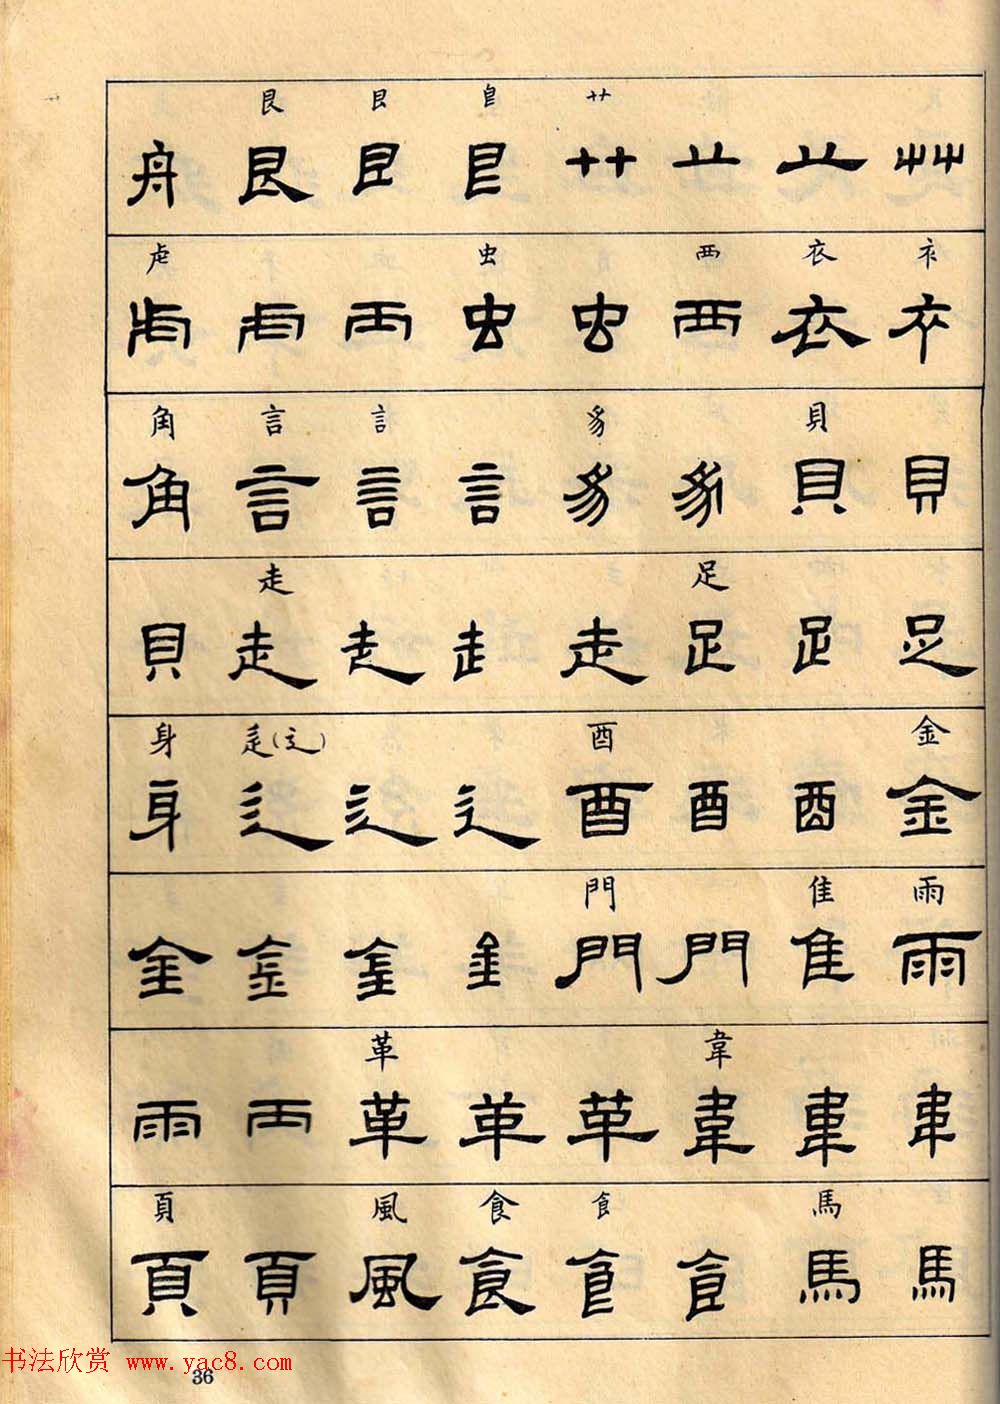 艮 艮 𠂤 艹
舟 艮 艮 𠂤 艹 䒑 䒑 艸
虍 虫 襾 衣 衤
虍 虍 襾 虫 虫 襾 衣 衤
角 言 訁 豸 貝
角 言 訁 訁 豸 豸 貝 貝
走 足
貝 走 走 走 走 足 足 足
身 辵(辶) 酉 金
身 辶 辶 辶 酉 酉 酉 金
門 隹 雨
金 金 金 金 門 門 隹 雨
革 韋
雨 雨 革 革 革 韋 韋 韋
頁 風 食 飠 馬
頁 頁 風 食 飠 飠 馬 馬
书法欣赏 www.yac8.com
36